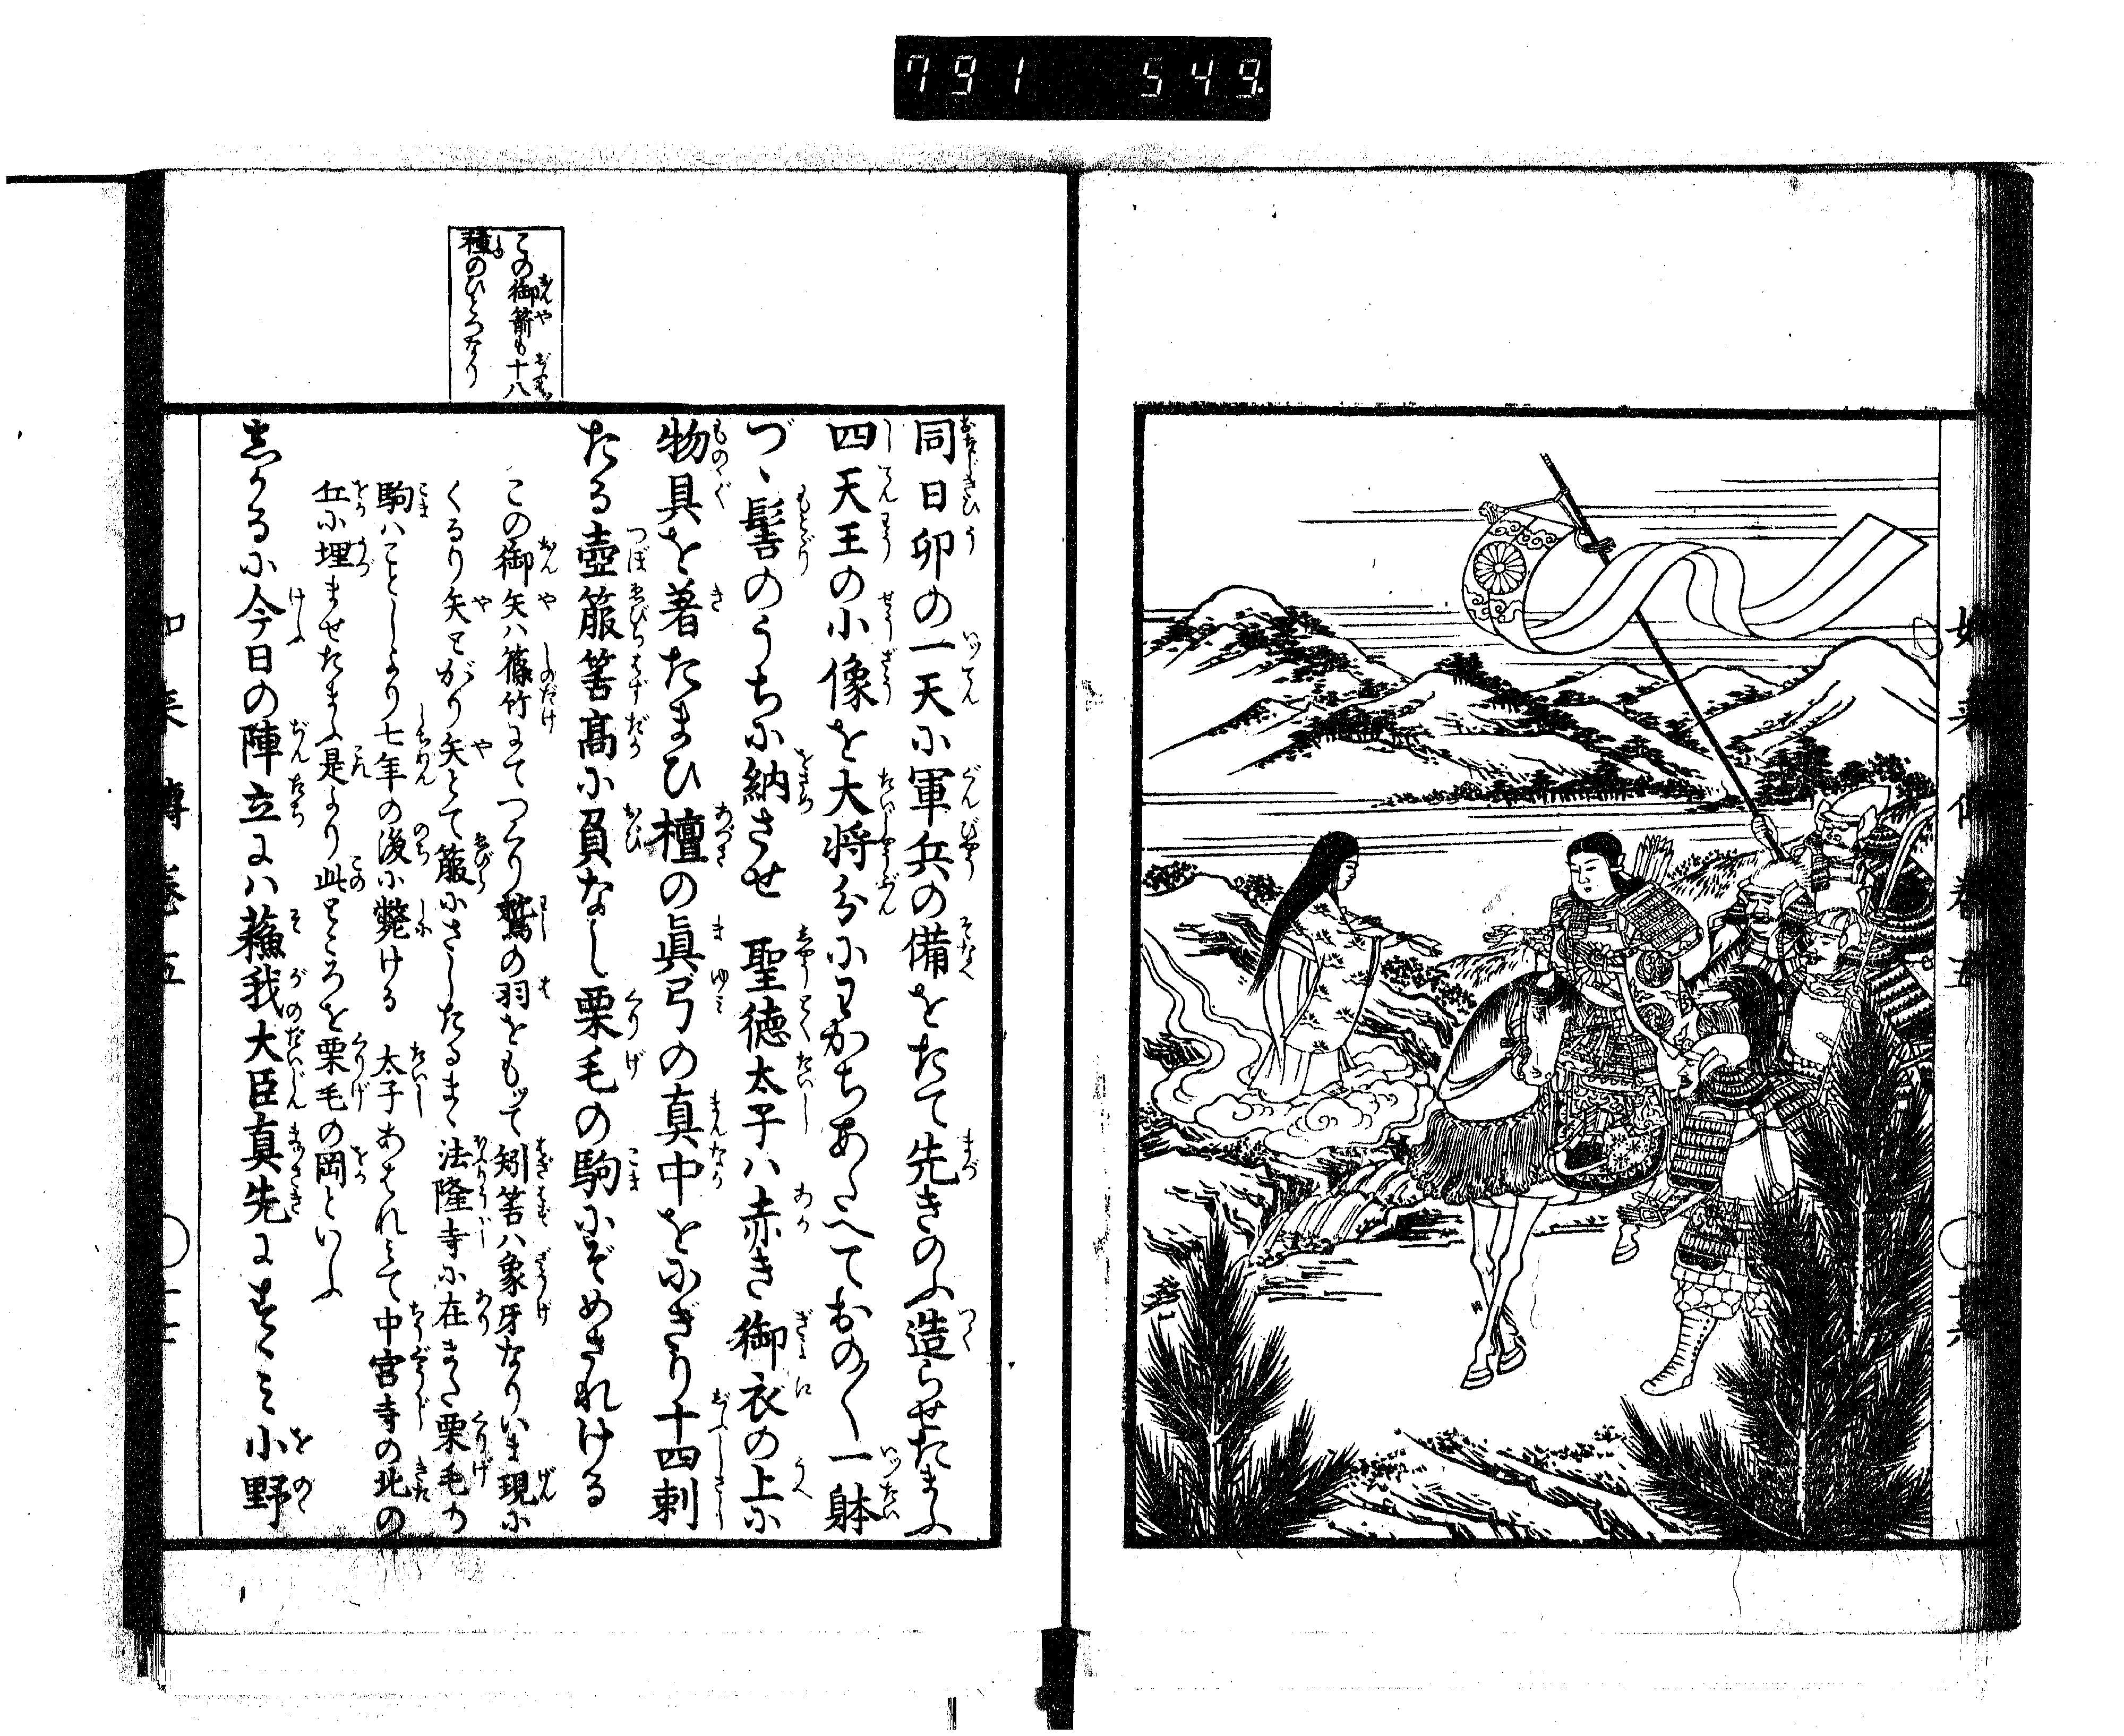 791 549
如来傳巻五
同日卯の一天に軍兵の備をたて先きのふ造らせたまふ
四天王の小像を大将分にわかちあたへておの〳〵一躰
づゝ髻のうちに納させ 聖徳太子ハ赤き御衣の上に
物具を着たまひ檀の眞弓の真中をにぎり十四刺
たる壺箙筈高に負なし栗毛の駒にぞめされける
この御矢ハ篠竹にてつくり鷲の羽をもつて矧筈ハ象牙なりいま現に
くるり矢とがり矢とて箙にさしたるまゝ法隆寺に在また栗毛の
駒ハことしより七年の後に斃ける 太子あはれみて中宮寺の北の
丘に埋ませたまふ是より此ところを栗毛の岡といふ
しかるに今日の陣立にハ蘓我大臣真先にすゝみ小野
この御箭も十八
種のひとつなり
如来傳巻五